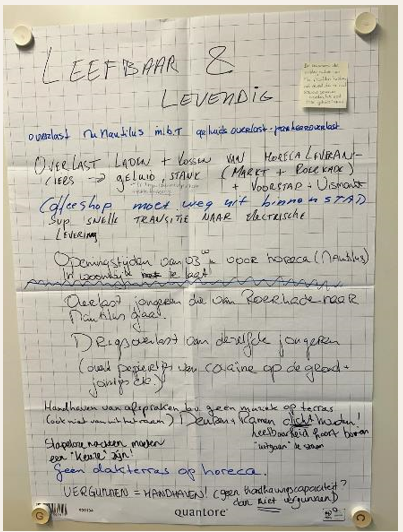 LEEFBAAR &
LEVENDIG
overlast Nautilus m.b.t geluidsoverlast-parkeeroverlast
OVERLAST LADEN + LOSSEN VAN HORECA LEVERAN-
CIERS → GELUID, STANK (MARKT + ROERKADE)
+ VOORSTAD + Vismarkt
Coffeeshop moet weg uit binnenSTAD
SNELLE TRANSITIE NAAR ELECTRISCHE
LEVERING
Openingstijden van 03 voor horeca (Nautilus)
in woonwijk te laat
Overlast jongeren die van Roerkade naar
Nautilus gaan.
Drugsoverlast van dezelfde jongeren
(overal papiertjes van cocaïne op de grond +
jointjes etc.)
Handhaven van afspraken geen muziek op terras
(ook niet van uit het raam) Deuren + Ramen dicht houden!
leefbaarheid hoort boven
"uitgaan" te staan
een "keuze" zijn!
Geen dakterras op horeca.
VERGUNNEN = HANDHAVEN! (geen handhavingscapaciteit?
dan niet vergunnen)
quantore